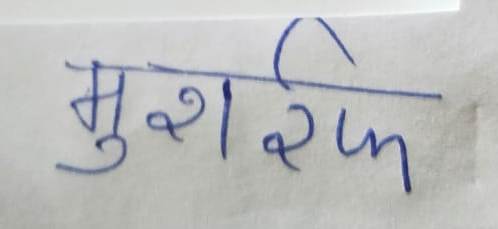 मुशरिफ